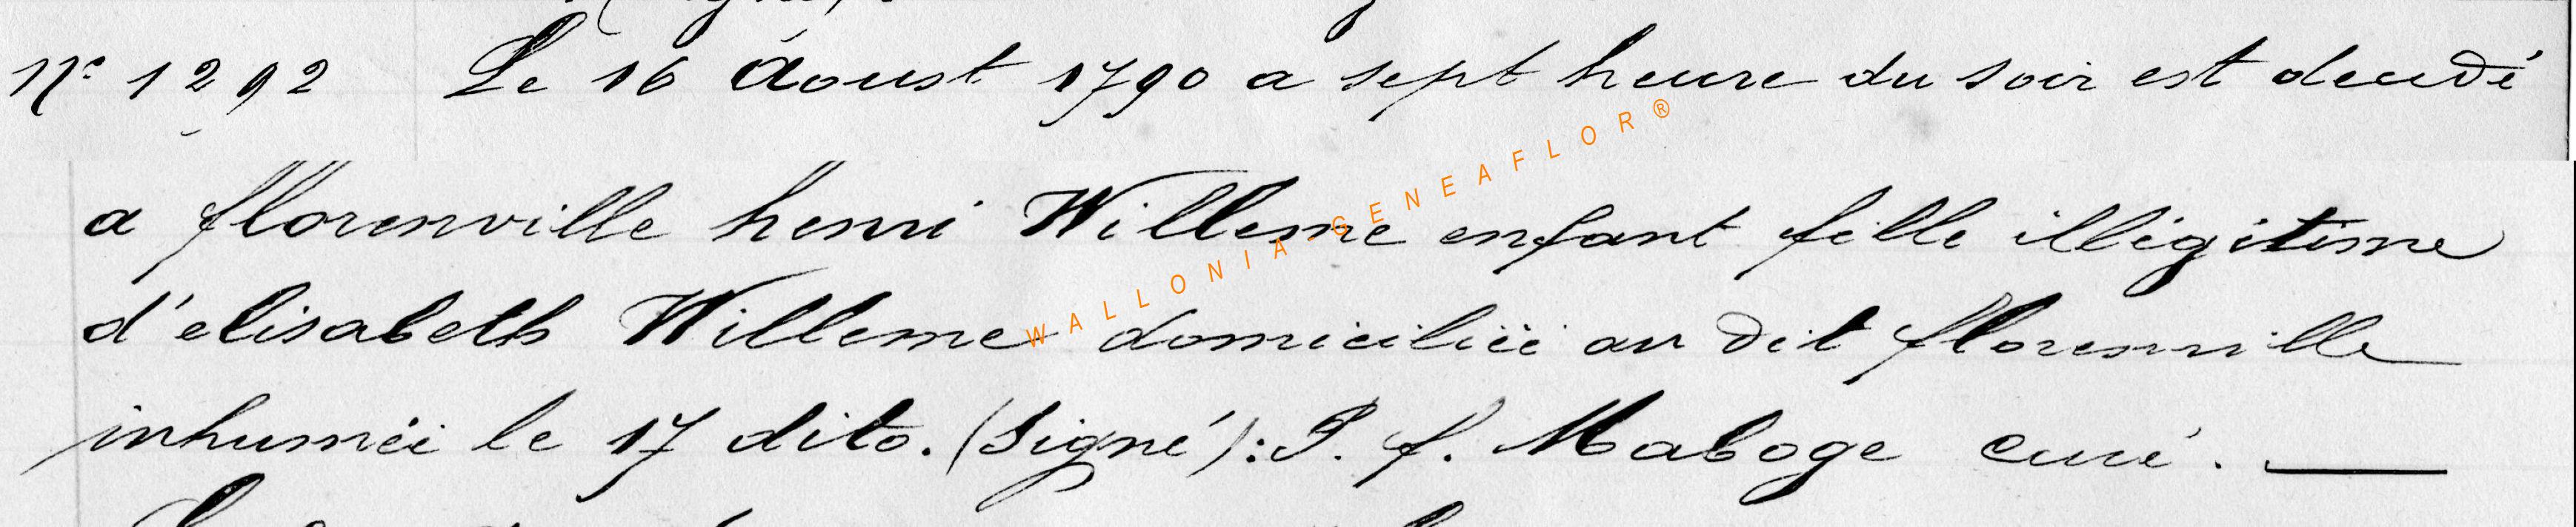 N° 1292 Le 16 Aoust 1790 a sept heure du soir est decedé
a florenville henri Willeme enfant fille illigitime
d'elisabeth Willeme domiciliéé au dit florenville
inhuméé le 17 dito. (Signé): P. f. Maboge curé.
WALLONIA-GENEAFLOR®